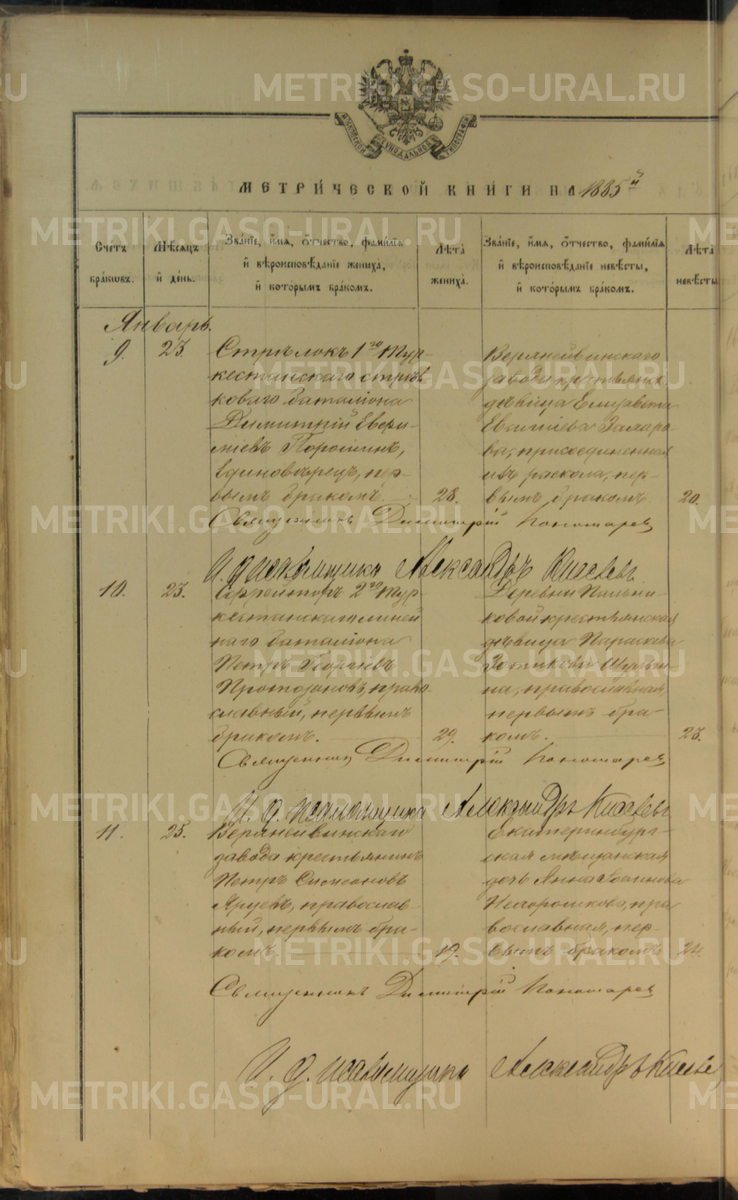 МОСКОВСКОЙ СѴНОДАЛЬНОЙ ТИПОГРАФІИ
МЕТРИ́ЧЕСКОЙ КНИГИ НА 1885 й
Счетъ бра́ковъ.
Мѣсяцъ и҆ де́нь.
Зва́нїе, и҆́мя, о҆́тчество, фами́лїя и҆ вѣроисповѣ́данїе жениха̀, и҆ кото́рымъ бра́комъ.
Лѣ́та жениха̀.
Зва́нїе, и҆́мя, о҆́тчество, фами́лїя и҆ вѣроисповѣ́данїе невѣ́сты, и҆ кото́рымъ бра́комъ.
Лѣ́та невѣ́сты
Январь.
9. 23.
Стрѣлокъ 1го Тур-
кестанскаго стрѣл
коваго баталіона
Димитрій
Порошинъ,
единовѣрецъ, пер-
вымъ бракомъ. 28.
Верхнейвинскаго
завода крестьянск
дѣвица Елизавета
присоединенная
изъ раскола, пер-
вымъ бракомъ 20.
Священникъ Димитрій Пономарев
И. д. псаломщика Александръ Киселевъ
10. 23.
Ефрейторъ 2го Тур-
кестанскаго линей
наго баталіона
Петръ
право
славный, первымъ
бракомъ. 29.
Деревни
ковой крестьянская
дѣвица Параскева
на, православная,
первымъ бра-
комъ. 23.
Священник Димитрій Пономарев
И. д. псаломщика Александръ Киселевъ
11. 25.
Верхнейвинскаго
завода крестьянинъ
Петръ Симеоновъ
православ-
ный, первымъ бра-
комъ. 19.
Екатеринбург-
ская мѣщанская
дочь Анна Іоаннова
пра
вославная, пер-
вымъ бракомъ 24.
Священникъ Димитрій Пономарев
И. д. псаломщика Александръ Киселев
METRIKI.GASO-URAL.RU